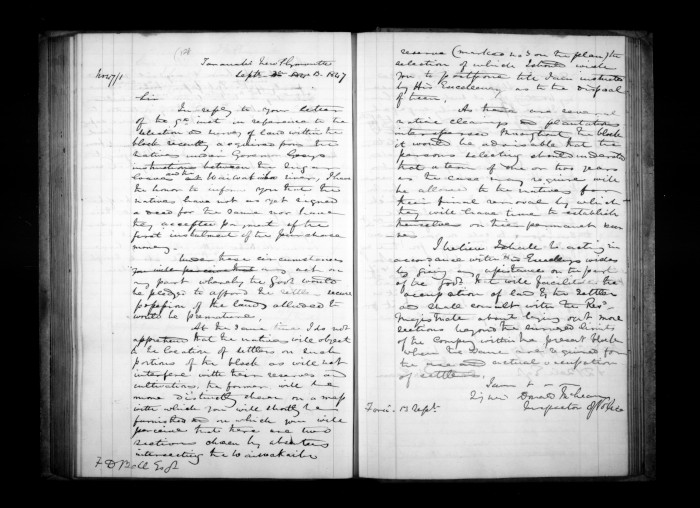 Taranaki New Plymouth
Sept 1847
Sir
In reply to your letter
of the 9th inst in reference to the
selection & survey of land within the
block recently acquired from the
natives under Governor Greys
instructions between the Sugar
loaves & the Waiwakaiho river, I have
the honor to inform you that the
natives have not as yet signed
a deed for the same nor have
they accepted payment of the
first instalment of the purchase
money.
Under these circumstances
any act on
my part whereby the Govt would
be pledged to afford the settlers secure
possession of the land alluded to
would be premature.
At the same time I do not
apprehend that the natives will object
to the location of settlers on such
portions of the block as will not
interfere with their reserves and
cultivations, the former will be
more distinctly shewn on a map
with which you will shortly be
furnished & on which you will
perceive that there are two
sections chosen by absentees
intersecting the Waiwakaiho
F D Bell Esqr
reserve (marked no 3 on the plan) the
selection of which I should wish
you to postpone till I am instructed
by His Excellency as to the disposal
of them.
As there are several
native clearings & plantations
interspersed throughout the block
it would be advisable that the
persons selecting should understand
that a term of one or two years
as the case may require will
be allowed to the natives for
their final removal by which
they will have time to establish
themselves on their permanent
I believe I shall be acting in
accordance with His Excellencys wishes
by giving any assistance on the part
of the Govt that will facilitate the
occupation of land by the settlers
and shall consult with the Resdt
Magistrate about laying out more
sections beyond the surveyed limits
of the Company within the present block
when the same are required for
the use and actual occupation
of settlers.
I have &
Signed Donald McLean
Inspector of Police
13 Sept.